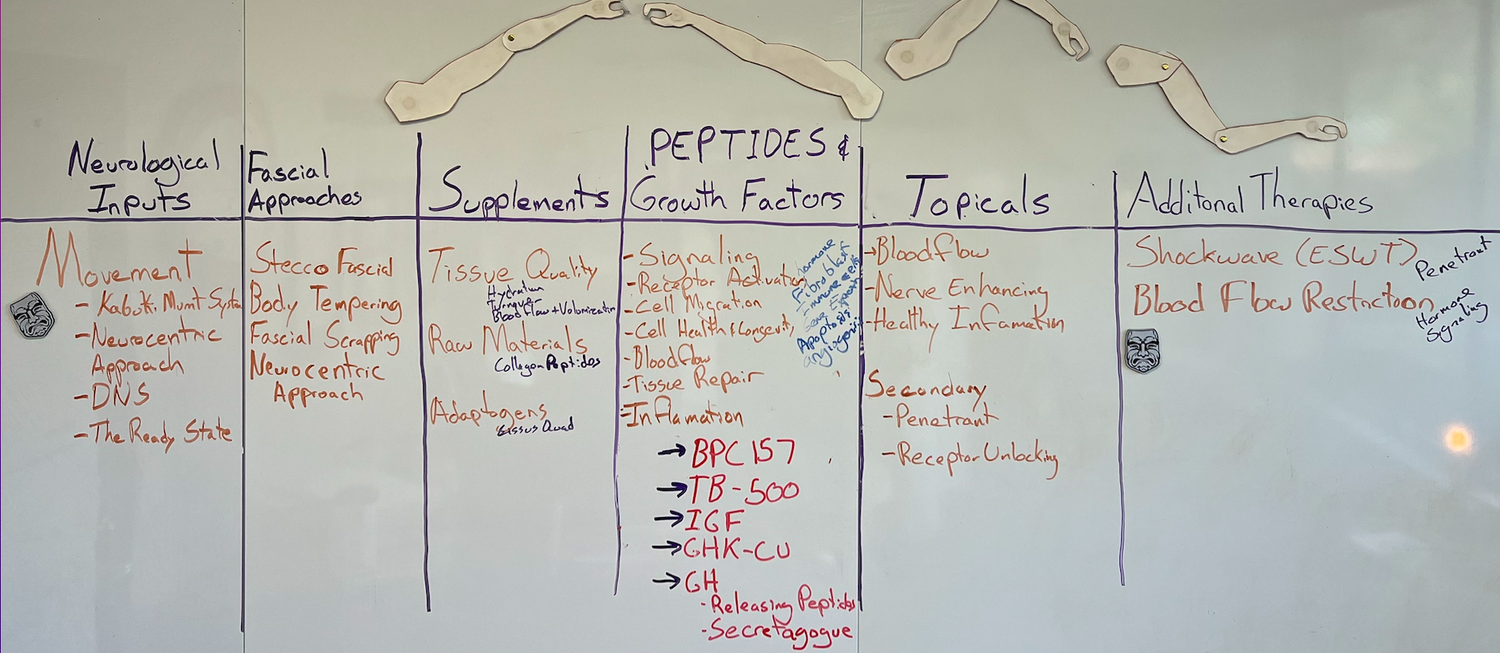 Neurological
Inputs
Movement
- Kabuki Mvmt System
- Neurocentric
Approach
- DNS
- The Ready State
Fascial
Approaches
Stecco Fascial
Body Tempering
Fascial Scrapping
Neurocentric
Approach
Supplements
Tissue Quality
Hydration
Blood flow + Volumization
Raw Materials
Collagen Peptides
Adaptogens
Cissus Quad
PEPTIDES &
Growth Factors
- Signaling
- Receptor Activation
- Cell Migration
- Cell Health & Longevity
- Bloodflow
- Tissue Repair
- Inflamation
Hormone
Fibroblast
immune
gene
Apoptosis
angiogenisis
→ BPC 157
→ TB-500
→ IGF
→ GHK-CU
→ GH
- Releasing Peptides
- Secretagogue
Topicals
- Bloodflow
- Nerve Enhancing
- Healthy Infamation
Secondary
- Penetrant
- Receptor Unlocking
Additonal Therapies
Shockwave (ESWT)
Penetrant
Blood Flow Restriction
Hormone
Signaling